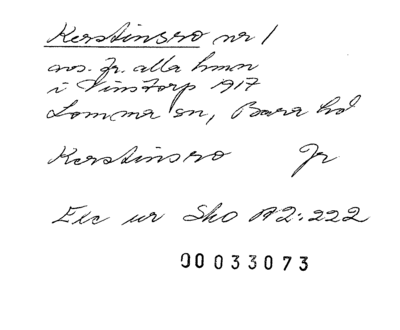 Kerstinsro nr 1
avs. fr. alla hmn
i Vinstorp 1917
Lomma sn, Bara hd
Kerstinsro Jr
Exc ur Sko A2:222
00033073